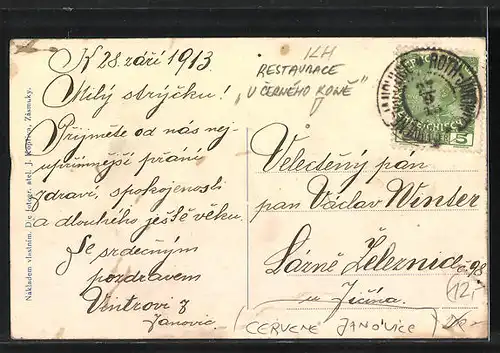 K 28. září 1913
Milý strýčku!
Přijměte od nás nej-
upřímnější přání
zdraví, spokojenosti
a dlouhého ještě věku.
Se srdečným
pozdravem
Vintrovi z
Janovic
Nákladem vlastním. Dle fotogr. atel. J. Kopřiva, Zásmuky.
RESTAURACE
"U ČERNÉHO KONĚ"
5
Velectěný pán
pan Václav Winter
Lázně Železnice č. 98
u Jičína.
12,-
(ČERVENÉ JANOVICE)